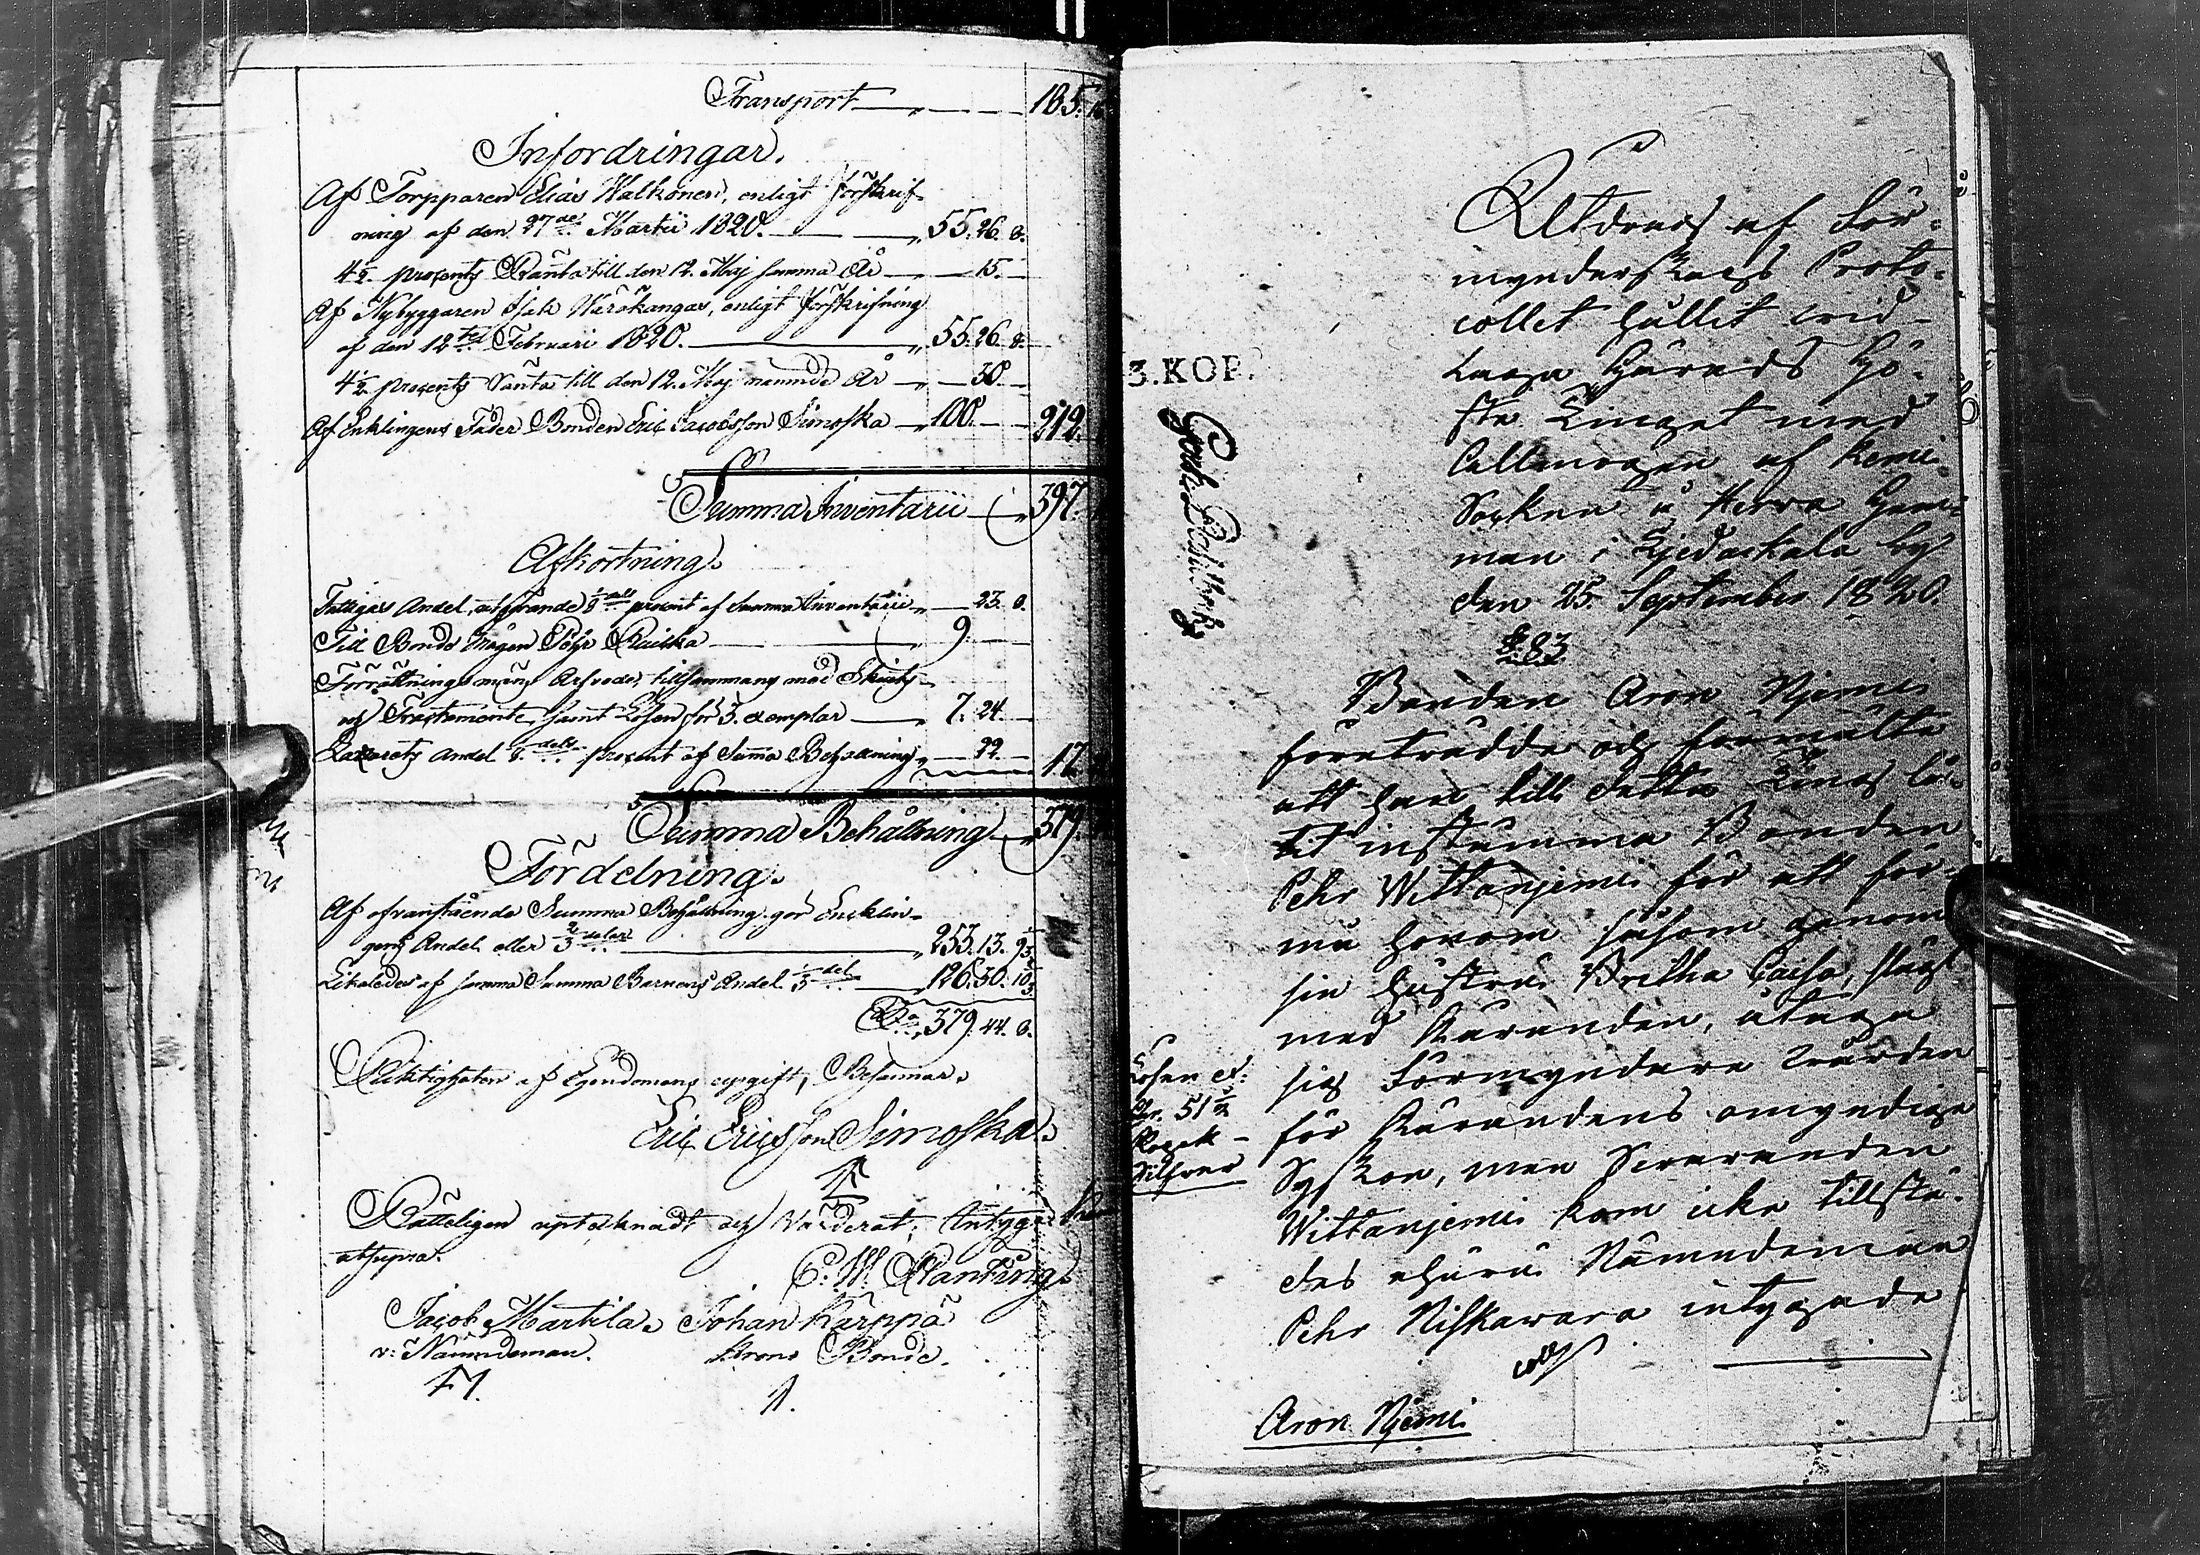 Transport 185.
Infordringar.
Af Torpparen Elias Walkonen, enligt Förskrif-
ning af den 27de Martii 1820. 55. 26. 8.
4½ procents Ränta till den 12. Maj samma år 15.
Af Nybyggaren Isak Wiirikangas, enligt Förskrifning
af den 12te Februari 1820. 55. 26. 8.
4½ procents Ränta till den 12. Maj nämnde år 30.
Af Enklingens Fader Bonden Eric Jacobsson Simoska 100. 212.
Summa Inventarii 397.
Afkortning.
Fattigas Andel, utgörande 8dels procent af Summa Inventarii 23. 8.
Till Bonde Mågen Pehr 9.
Förrättningsmäns Arfvode, tillsammans med Skjuts
och Tractamente, samt Lösen för 3. exemplar 7. 24.
Lazarets andel 8.dels procent af Summa Behållning 22. 17.
Summa Behållning 379.
Fördelning.
Af ofvanstående Summa Behållning gör Encklin-
gens Andel eller 2/3 delar 253. 13. 9⅓
Likaledes af samma Summa Barnens Andel 1/3 del 126. 30. 10⅔
379. 44. 8.
Riktigheten af Egendomens uppgift, Besannar.
Eric Ericsson Simoska.
Rätteligen uptecknadt och Värderat; Intyga
utsupra.
C. W. Planting
Jacob Martila. Johan Karppa
v: Nämndeman. Krono Bonde.
3.KOP.
Utdrag af För-
mynderskaps Proto-
collet hållit vid
Laga Härads Hö-
ste Tinget med
Allmogen af Kemi
Socken å Herva Hem-
man i Tjedaskala by
den 25. September 1820.
§. 83.
Bonden Aron Njemi
företrädde och förmälte
att han till detta Ting lå-
tit instämma Bonden
Pehr Wittanjemi för att för-
må honom såsom genom
sin hustru Britha Caisa, slägt
med Käranden, åtaga
sig Förmyndare vården
för Kärandens omyndiga
Syskon, men Svaranden
Wittanjemi kom icke tillstä-
des ehuru Nämndeman
Pehr Niskawara intygade
Lösen
51½
Kopek
Silfver
Aron Njemi